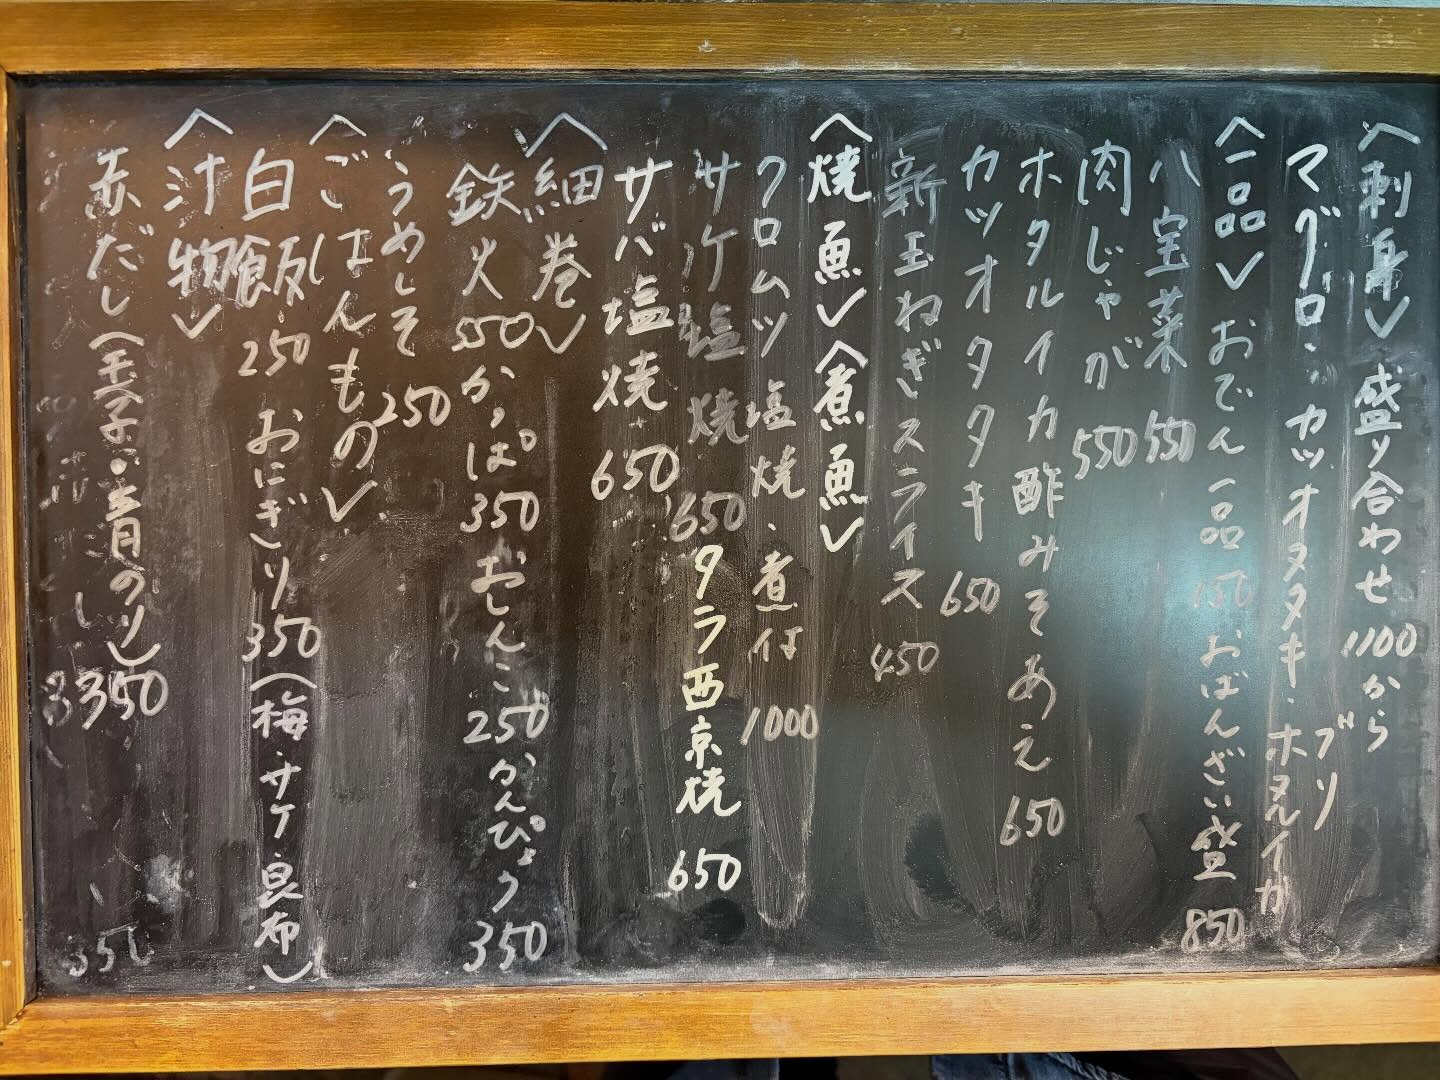 〈刺身〉盛り合わせ 1100から
マグロ・カツオタタキ・ホタルイカ
ブリ
〈一品〉おでん一品 150 おばんざい盛 850
八宝菜 550
肉じゃが 550
ホタルイカ酢みそあえ 650
カツオタタキ 650
新玉ねぎスライス 450
〈焼魚〉〈煮魚〉
クロムツ塩焼・煮付 1000
サケ塩焼 650 タラ西京焼 650
サバ塩焼 650
〈細巻〉
鉄火 550 かっぱ 350 おしんこ 250 かんぴょう 350
うめしそ 250
〈ごはんもの〉
白飯 250 おにぎり 350 (梅・サケ・昆布)
〈汁物〉
赤だし(玉子・青のり) 350
350